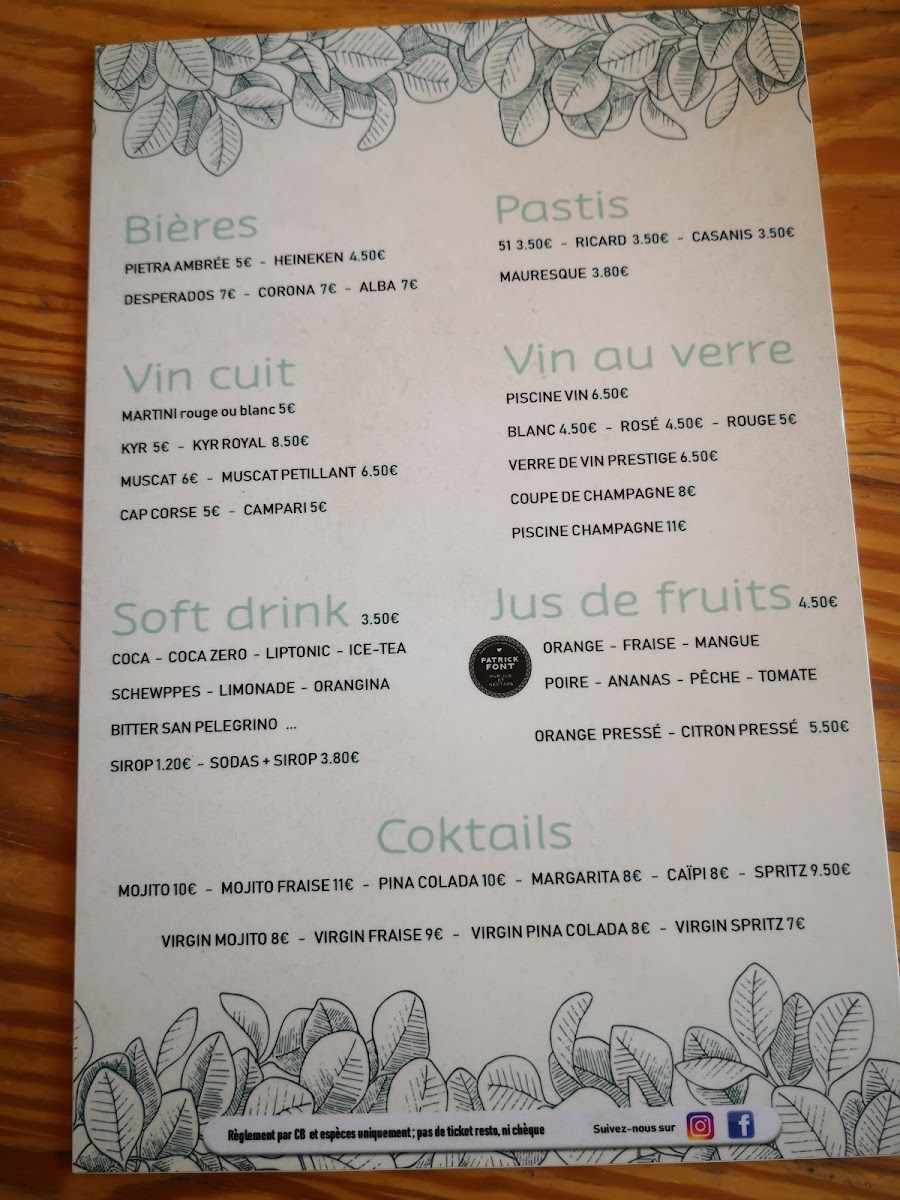 Bières
PIETRA AMBRÉE 5€ - HEINEKEN 4.50€
DESPERADOS 7€ - CORONA 7€ - ALBA 7€
Pastis
51 3.50€ - RICARD 3.50€ - CASANIS 3.50€
MAURESQUE 3.80€
Vin cuit
MARTINI rouge ou blanc 5€
KYR 5€ - KYR ROYAL 8.50€
MUSCAT 6€ - MUSCAT PETILLANT 6.50€
CAP CORSE 5€ - CAMPARI 5€
Vin au verre
PISCINE VIN 6.50€
BLANC 4.50€ - ROSÉ 4.50€ - ROUGE 5€
VERRE DE VIN PRESTIGE 6.50€
COUPE DE CHAMPAGNE 8€
PISCINE CHAMPAGNE 11€
Soft drink 3.50€
COCA - COCA ZERO - LIPTONIC - ICE-TEA
SCHEWPPES - LIMONADE - ORANGINA
BITTER SAN PELEGRINO ...
SIROP 1.20€ - SODAS + SIROP 3.80€
Jus de fruits 4.50€
PATRICK
FONT
PUR JUS
ET
NECTARS
ORANGE - FRAISE - MANGUE
POIRE - ANANAS - PÊCHE - TOMATE
ORANGE PRESSÉ - CITRON PRESSÉ 5.50€
Coktails
MOJITO 10€ - MOJITO FRAISE 11€ - PINA COLADA 10€ - MARGARITA 8€ - CAÏPI 8€ - SPRITZ 9.50€
VIRGIN MOJITO 8€ - VIRGIN FRAISE 9€ - VIRGIN PINA COLADA 8€ - VIRGIN SPRITZ 7€
Règlement par CB et espèces uniquement ; pas de ticket resto, ni chèque
Suivez-nous sur